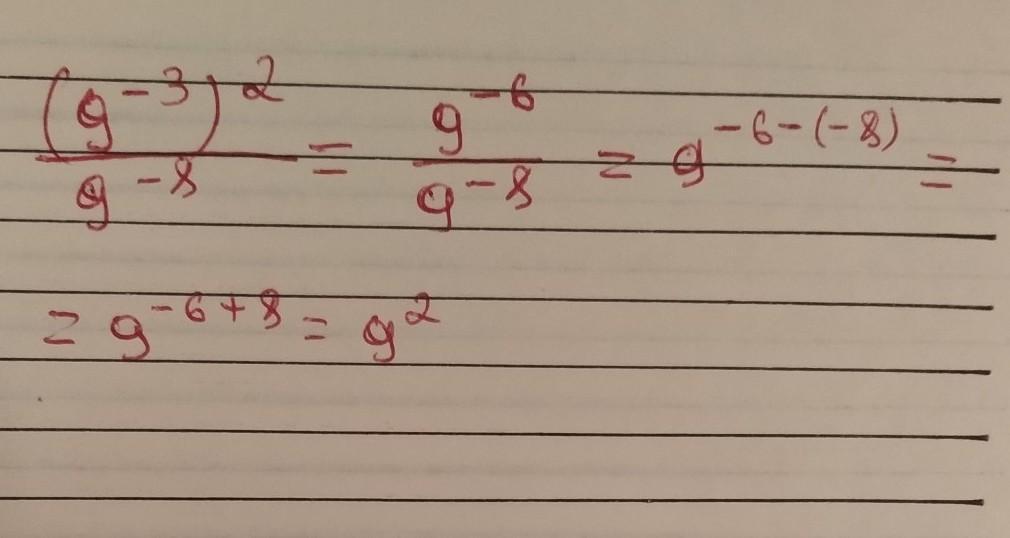 (9⁻³)² / 9⁻⁸ = 9⁻⁶ / 9⁻⁸ = 9⁻⁶⁻⁽⁻⁸⁾ =
= 9⁻⁶⁺⁸ = 9²